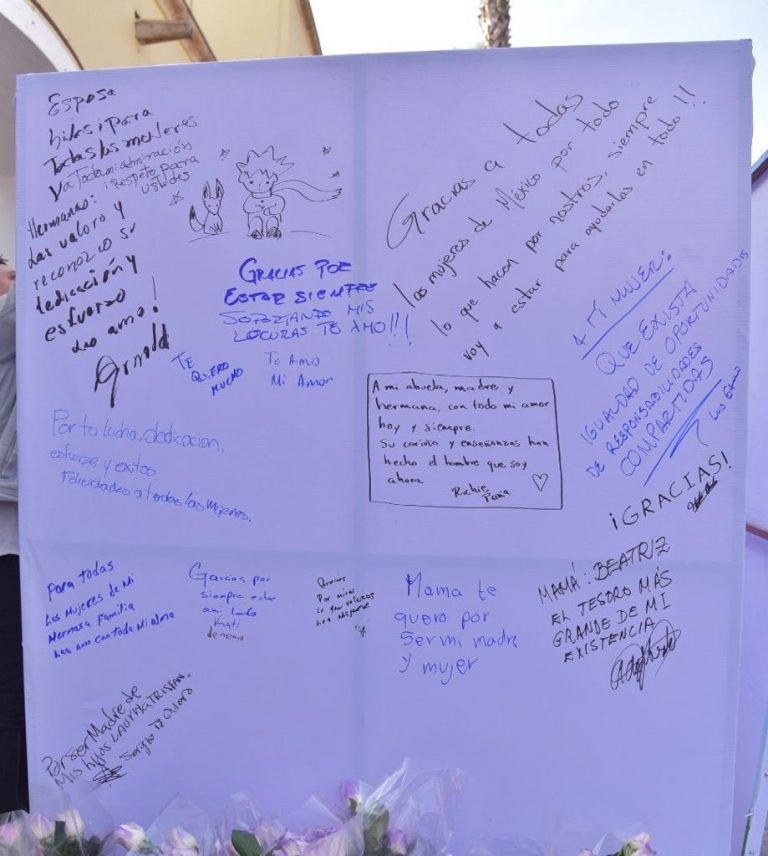 Esposa
hijas i para
Todas las mujeres
va Toda mi admiración
i Respeto para
ustedes
Hermanas:
Las valoro y
reconozco su
dedicación y
esfuerzo
Las amo!
Arnold
Gracias a todas
las mujeres de México por todo
lo que hacen por nostros, siempre
voy a estar para ayudarlas en todo!!
GRACIAS POR
ESTAR SIEMPRE
SOPORTANDO MIS
LOCURAS TE AMO!!!
TE
QUIERO
MUCHO
Te Amo
Mi Amor
A TI MUJER:
QUE EXISTA
IGUALDAD DE OPORTUNIDADES
DE RESPONSABILIDADES
COMPARTIDAS
Luis
A mi abuela, madre y
hermana, con todo mi amor
hoy y siempre.
Su cariño y enseñanzas han
hecho el hombre que soy
ahora.
Richie
Peña
Por tu lucha, dedicacion,
esfuerzo y exitos
Felicidades a todas las Mujeres.
¡GRACIAS!
Para todas
Las Mujeres de Mi
Hermosa Familia
Las amo con Toda Mi alma
Gracias por
siempre estar
a mi lado
Kati
Gracias
Por
Mama te
quero por
Ser mi madre
y mujer
MAMÁ: BEATRIZ
EL TESORO MÁS
GRANDE DE MI
EXISTENCIA
Por ser Madre de
Mis hijos LAURA TRISTAN.
Sergio Te Quiero